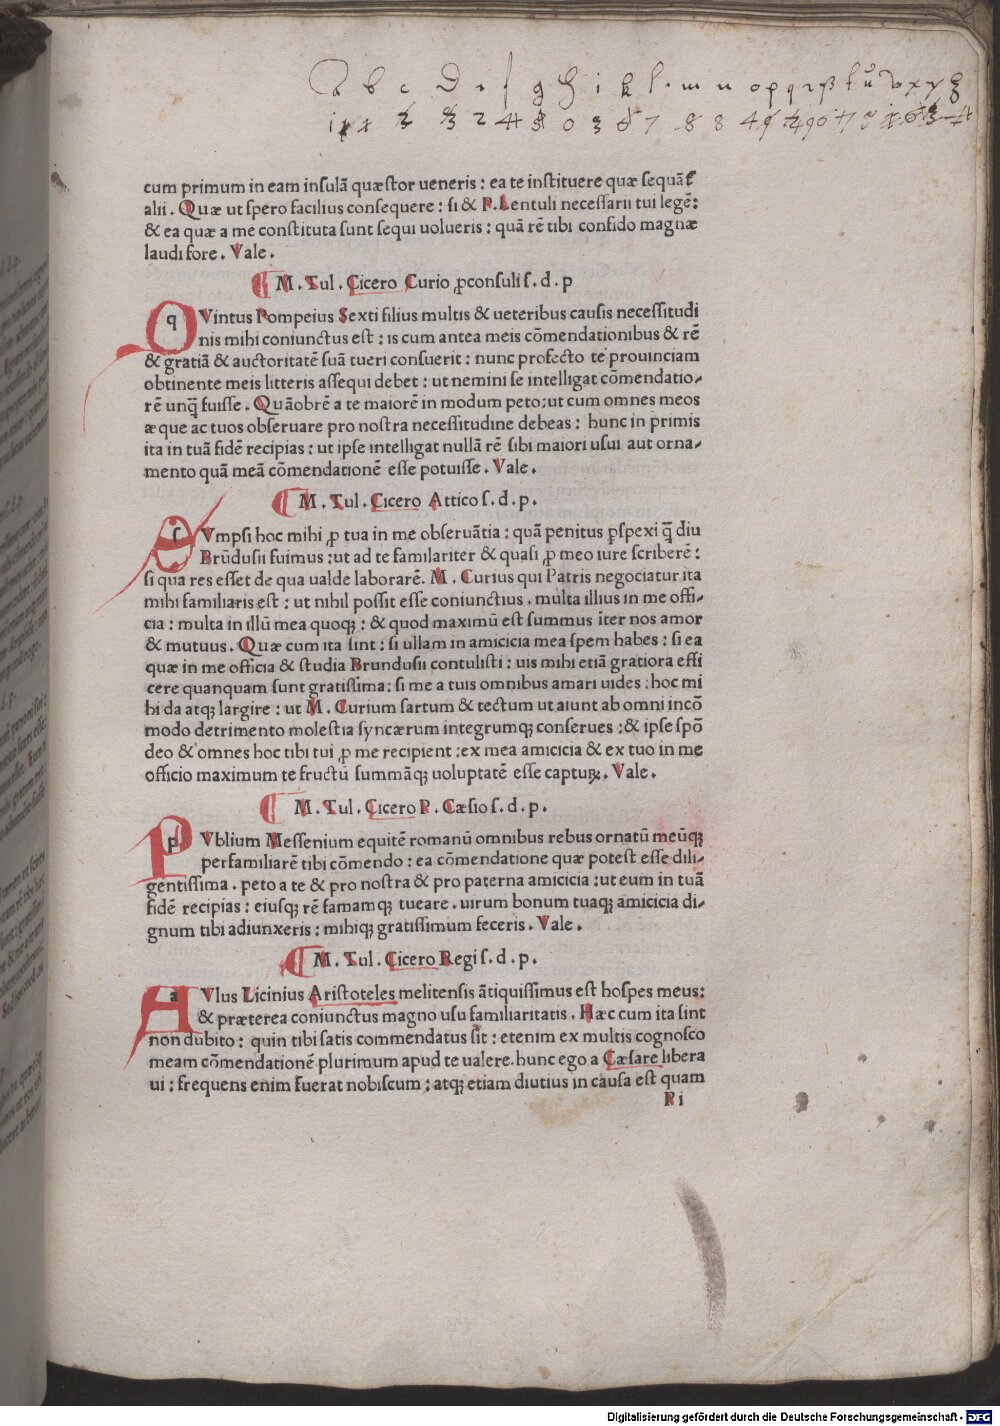 a b c D e f g h i k l m n o p q r s t u v x y z
cum primum in eam insulã quæstor ueneris : ea te instituere quæ sequãt̃
alii . Quæ ut spero facilius consequere : si & P. Lentuli necessarii tui legẽ :
& ea quæ a me constituta sunt sequi uolueris : quã rẽ tibi confido magnæ
laudi fore . Vale .
M . Tul . Cicero Curio ꝓconsuli s . d . p
q Vintus Pompeius Sexti filius multis & ueteribus causis necessitudi
nis mihi coniunctus est : is cum antea meis cõmendationibus & rẽ
& gratiã & auctoritatẽ suã tueri consuerit : nunc profecto te prouinciam
obtinente meis litteris assequi debet : ut nemini se intelligat cõmendatio-
rẽ unq̃ fuisse . Quãobrẽ a te maiorẽ in modum peto : ut cum omnes meos
æque ac tuos obseruare pro nostra necessitudine debeas : hunc in primis
ita in tuã fidẽ recipias : ut ipse intelligat nullã rẽ sibi maiori usui aut orna-
mento quã meã cõmendationẽ esse potuisse . Vale .
M . Tul . Cicero Attico s . d . p .
s Vmpsi hoc mihi ꝓ tua in me obseruãtia : quã penitus ꝑspexi q̃ diu
Brũdusii fuimus : ut ad te familariter & quasi ꝓ meo iure scriberẽ :
si qua res esset de qua ualde laborarẽ . M . Curius qui Patris negociatur ita
mihi familiaris est : ut nihil possit esse coniunctius . multa illius in me offi-
cia : multa in illũ mea quoqꝫ : & quod maximũ est summus ĩter nos amor
& mutuus . Quæ cum ita sint : si ullam in amicicia mea spem habes : si ea
quæ in me officia & studia Brundusii contulisti : uis mihi etiã gratiora effi
cere quanquam sunt gratissima : si me a tuis omnibus amari uides : hoc mi
hi da atqꝫ largire : ut M . Curium sartum & tectum ut aiunt ab omni incõ
modo detrimento molestia syncærum integrumqꝫ conserues : & ipse spõ
deo & omnes hoc tibi tui ꝓ me recipient : ex mea amicicia & ex tuo in me
officio maximum te fructũ summãqꝫ uoluptatẽ esse captuꝝ . Vale .
M . Tul . Cicero P . Cæsio s . d . p .
p Vblium Messenium equitẽ romanũ omnibus rebus ornatũ meũqꝫ
perfamiliarẽ tibi cõmendo : ea cõmendatione quæ potest esse dili-
gentissima . peto a te & pro nostra & pro paterna amicicia : ut eum in tuã
fidẽ recipias : eiusqꝫ rẽ famamqꝫ tueare . uirum bonum tuaqꝫ amicicia di-
gnum tibi adiunxeris : mihiqꝫ gratissimum feceris . Vale .
M . Tul . Cicero Regi s . d . p .
a Vlus Licinius Aristoteles melitensis ãtiquissimus est hospes meus :
& præterea coniunctus magno usu familiaritatis . Hæc cum ita sint
non dubito : quin tibi satis commendatus sit : etenim ex multis cognosco
meam cõmendationẽ plurimum apud te ualere . hunc ego a Cæsare libera
ui : frequens enim fuerat nobiscum : atqꝫ etiam diutius in causa est quam
Ri
Digitalisierung gefördert durch die Deutsche Forschungsgemeinschaft - DFG